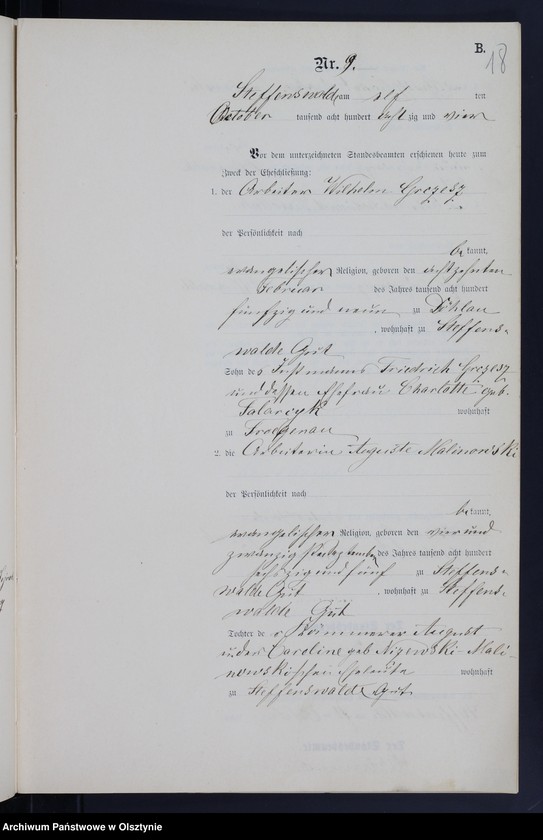 B.
18
Nr. 9.
Steffenswalde am elf ten
October tausend acht hundert acht zig und vier
Vor dem unterzeichneten Standesbeamten erschienen heute zum
Zweck der Eheschließung:
1. der Arbeiter Wilhelm Grzesz
der Persönlichkeit nach
be kannt,
evangelischer Religion, geboren den achtzehnten
Februar des Jahres tausend acht hundert
fünfzig und neun zu Döhlau
, wohnhaft zu Steffens-
walde Gut
Sohn des Instmanns Friedrich Grzesz
und dessen Ehefrau Charlotte geb.
wohnhaft
zu Frögenau
2. die Arbeiterin Auguste Malinowski
der Persönlichkeit nach
be kannt,
evangelischer Religion, geboren den vier und
zwanzigsten September des Jahres tausend acht hundert
sechszig und fünf zu Steffens-
walde Gut , wohnhaft zu Steffens-
walde Gut
Tochter de r Kämmerer August
und Caroline geb Nizewski-Mali-
nowskischen Eheleute wohnhaft
zu Steffenswalde Gut
Archiwum Państwowe w Olsztynie